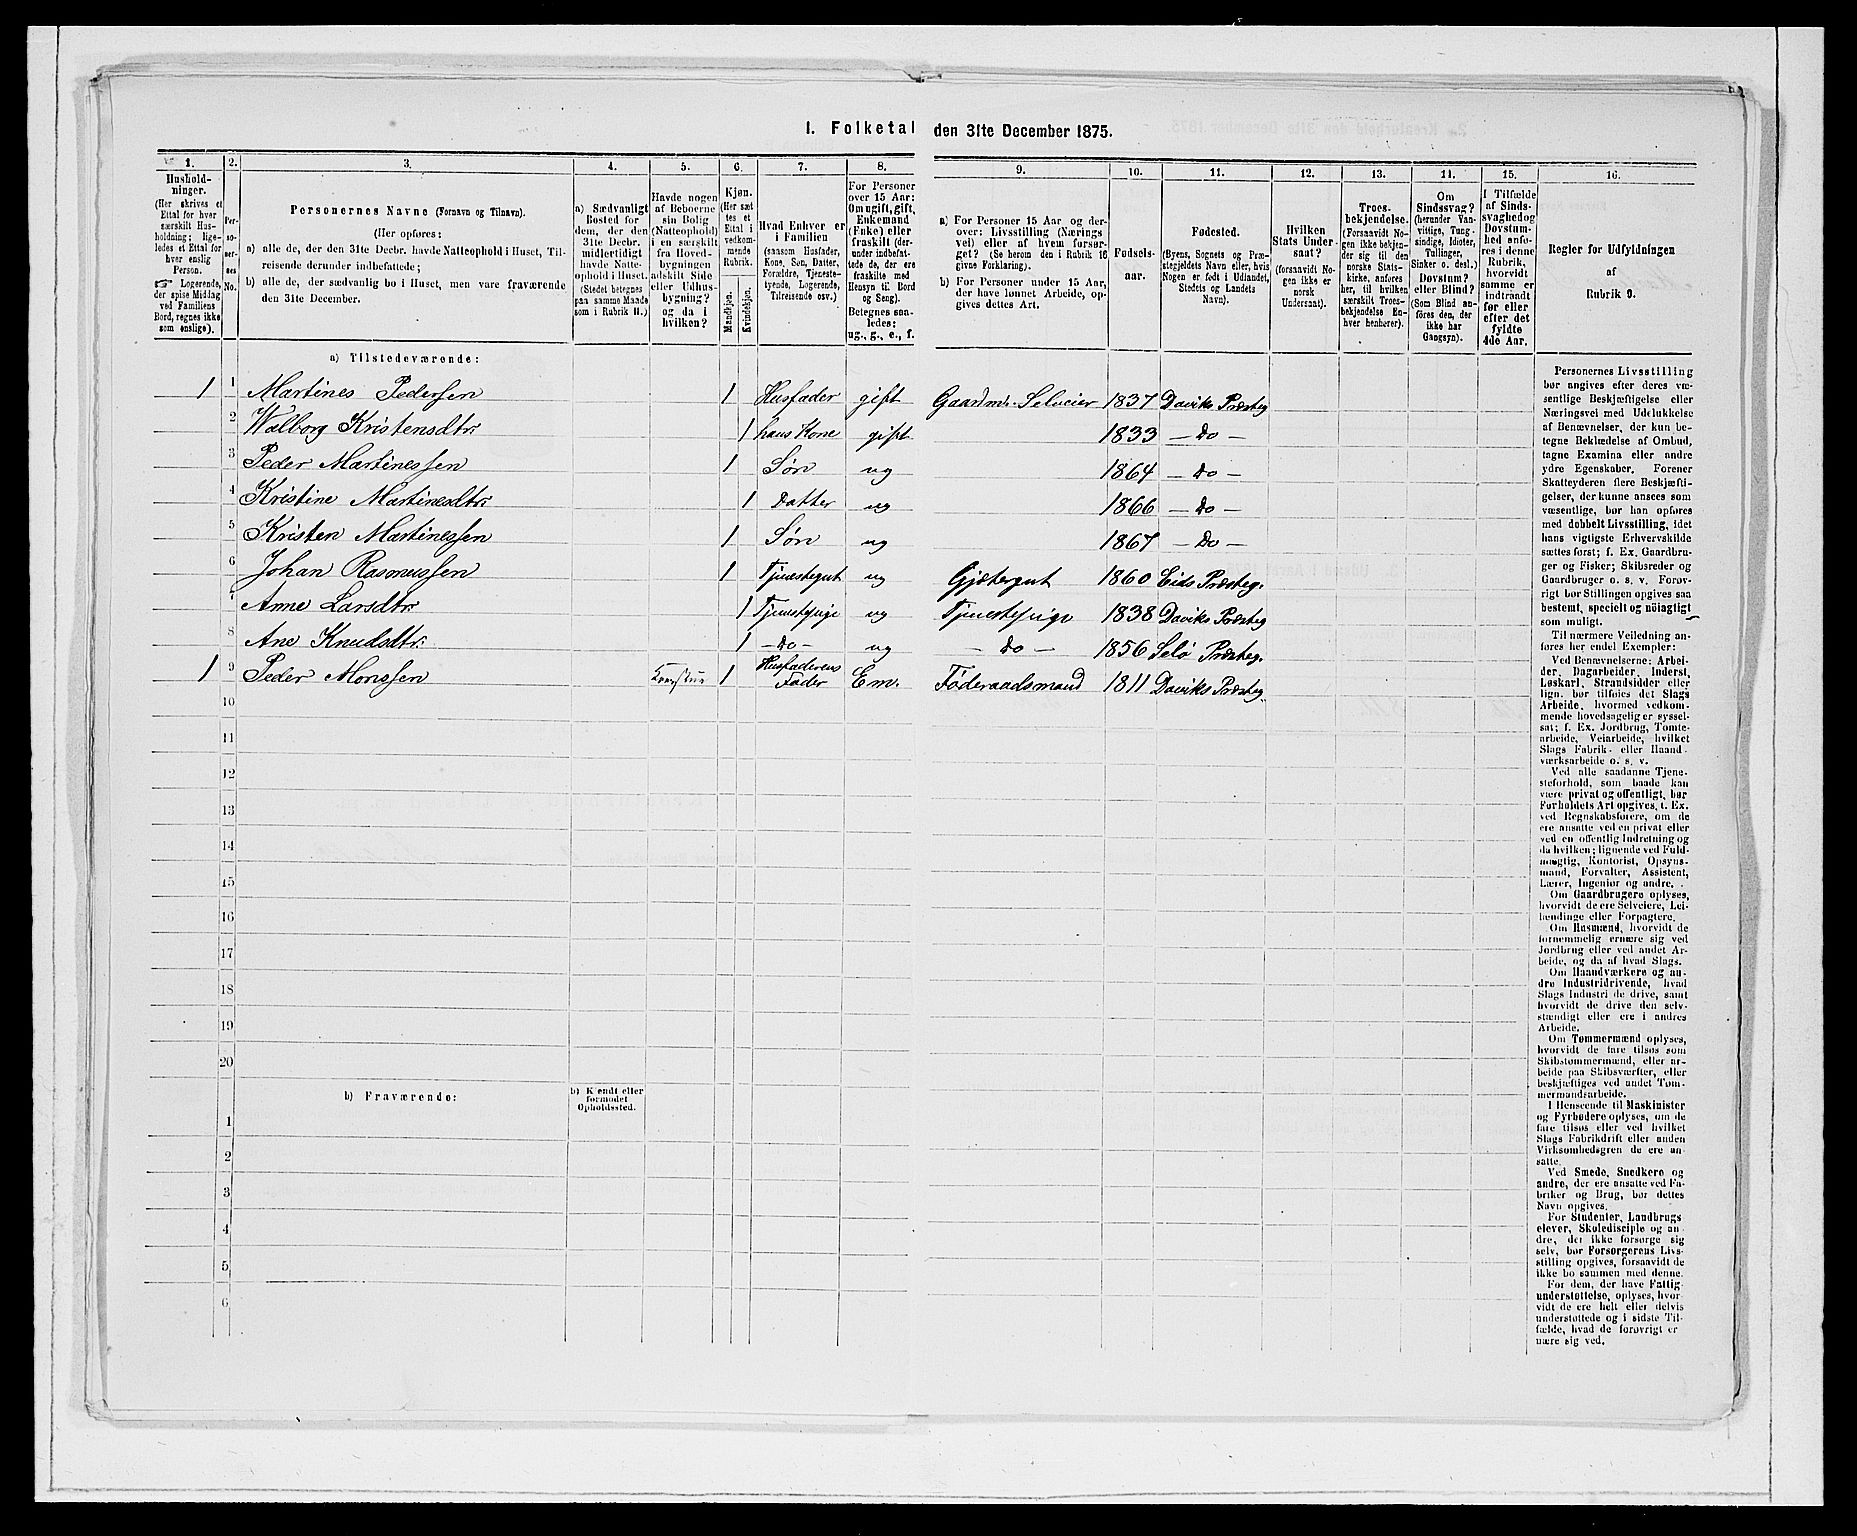 I. Folketal den 31te December 1875.
1. 2. 3. 4. 5. 6. 7. 8. 9. 10. 11. 12. 13. 11. 15. 16.
Hushold-
ninger.
(Her skrives et
Ettal for hver
særskilt Hus-
holdning; lige-
ledes et Ettal for
hver enslig
Person.
☞ Logerende,
der spise Middag
ved Familiens
Bord, regnes ikke
som enslige).
Per-
so-
ner-
nes
No.
Personernes Navne (Fornavn og Tilnavn).
(Her opføres:
a) alle de, der den 31te Decbr. havde Natteophold i Huset, Til-
reisende derunder indbefattede;
b) alle de, der sædvanlig bo i Huset, men vare fraværende
den 31te December.
a) Sædvanligt
Bosted for
dem, der den
31te Decbr.
midlertidigt
havde Natte-
ophold i Huset.
(Stedet betegnes
paa samme Maade
som i Rubrik 11.)
Havde nogen
af Beboerne
sin Bolig
(Natteophold)
i en særskilt
fra Hoved-
bygningen
adskilt Side
eller Udhus-
bygning?
og da i
hvilken?
Kjøn.
(Her sæt
tes et
Ettal i
vedkom-
mende
Rubrik.
Mandkjøn.
Kvindekjøn.
Hvad Enhver er
i Familien
(saasom Husfader,
Kone, Søn, Datter,
Forældre, Tjeneste-
tyende, Logerende,
Tilreisende osv.)
For Personer
over 15 Aar:
Om ugift, gift,
Enkemand
(Enke) eller
fraskilt (der-
under indbefat-
tede de, der ere
fraskilte med
Hensyn til Bord
og Seng).
Betegnes saa-
ledes:
ug., g., e., f.
a) For Personer 15 Aar og der-
over: Livsstilling (Nærings
vei) eller af hvem forsør-
get? (Se herom den i Rubrik 16
givne Forklaring).
b) For Personer under 15 Aar,
der have lønnet Arbeide, op-
gives dettes Art.
Fødsels-
aar.
Fødested.
(Byens, Sognets og Præ-
stegjeldets Navn eller, hvis
Nogen er født i Udlandet,
Stedets og Landets
Navn).
Hvilken
Stats Under-
saat?
(forsaavidt No-
gen ikke er
norsk
Undersaat).
Troes-
bekjendelse.
(Forsaavidt No-
gen ikke bekjen-
der sig til den
norske Stats-
kirke, anføres
her, til hvilken
særskilt Troes-
bekjendelse En-
hver henhører).
Om
Sindssvag?
(herunder Van-
vittige, Tung-
sindige, Idioter,
Tullinger,
Sinker o. desl.)
Døvstum?
eller Blind?
(Som Blind an-
føres den, der
ikke har
Gangsyn).
I Tilfælde
af Sinds-
svaghed og
Døvstum-
hed anfø-
res i denne
Rubrik,
hvorvidt
samme er
indtraadt
før eller
efter det
fyldte
4de Aar.
Regler for Udfyldningen
af
Rubrik 9.
a) Tilstedeværende:
1 1 Martines Pedersen 1 Husfader gift Gaardm. Selveier 1837 Daviks Præsteg
2 Walborg Kristensdtr. 1 hans Kone gift 1833 — Do —
3 Peder Martinessen 1 Søn ug 1864 — Do —
4 Kristine Martinesdtr. 1 Datter ug 1866 — Do —
5 Kristen Martinessen 1 Søn ug 1867 — Do —
6 Johan Rasmussen 1 Tjenestegut ug Gjætergut 1860 Eids Præsteg.
7 Anne Larsdtr. 1 Tjenestepige ug Tjenestepige 1838 Daviks Præsteg
8 Ane Knudsdtr. 1 — Do — ug — Do — 1856 Selø Præsteg.
1 9 Peder Monssen 1 Husfaderens Fader Em. Føderaadsmand 1811 Daviks Præsteg.
10
11
12
13
14
15
16
17
18
19
20
b) Fraværende:
b) Kjendt eller
formodet
Opholdssted.
1
2
3
4
5
6
Personernes Livsstilling
bør angives efter deres væ-
sentlige Beskjæftigelse eller
Næringsvei med Udelukkelse
af Benævnelser, der kun be-
tegne Beklædelse af Ombud,
tagne Examina eller andre
ydre Egenskaber. Forener
Skatteyderen flere Beskjæfti-
gelser, der kunne ansees som
væsentlige, bør han opføres
med dobbelt Livsstilling, idet
hans vigtigste Erhvervskilde
sættes først; f. Ex. Gaardbru-
ger og Fisker; Skibsreder og
Gaardbruger o. s. v. Forøv-
rigt bør Stillingen opgives saa
bestemt, specielt og nöiagtigt
som muligt.
Til nærmere Veiledning an-
føres her endel Exempler:
Ved Benævnelserne: Arbei-
der, Dagarbeider, Inderst,
Løskarl, Strandsidder eller
lign. bør tilføies det Slags
Arbeide, hvormed vedkom-
mende hovedsagelig er syssel-
sat; f. Ex. Jordbrug, Tomte-
arbeide, Veiarbeide, hvilket
Slags Fabrik- eller Haand-
værksarbeide o. s. v.
Ved alle saadanne Tjene-
steforhold, som baade kan
være privat og offentligt, bør
Forholdets Art opgives, t. Ex.
ved Regnskabsførere, om de
ere ansatte ved en privat eller
ved en offentlig Indretning og
da hvilken; lignende ved Fuld-
mægtig, Kontorist, Opsyns-
mand, Forvalter, Assistent,
Lærer, Ingeniør og andre.
Om Gaardbrugere oplyses,
hvorvidt de ere Selveiere, Lei-
lændinge eller Forpagtere.
Om Husmænd, hvorvidt de
fornemmelig ernære sig ved
Jordbrug eller ved andet Ar-
beide, og da af hvad Slags.
Om Haandværkere og an-
dre Industridrivende, hvad
Slags Industri de drive, samt
hvorvidt de drive den selv-
stændigt eller ere i andres
Arbeide.
Om Tømmermænd oplyses,
hvorvidt de fare tilsøs som
Skibstømmermænd, eller ar-
beide paa Skibsværfter, eller
beskjæftiges ved andet Tøm-
mermandsarbeide.
I Henseende til Maskinister
og Fyrbødere oplyses, om de
fare tilsøs eller ved hvilket
Slags Fabrikdrift eller anden
Virksomhedsgren de ere an-
satte.
Ved Smede, Snedkere og
andre, der ere ansatte ved Fa-
briker og Brug, bør dettes
Navn opgives.
For Studenter, Landbrugs
elever, Skoledisciple og an-
dre, der ikke forsørge sig
selv, bør Forsørgerens Livs-
stilling opgives, forsaavidt de
ikke bo sammen med denne.
For dem, der have Fattig-
understøttelse, oplyses, hvor-
vidt de ere helt eller delvis
understøttede og i sidste Til-
fælde, hvad de forøvrigt er
nære sig ved.